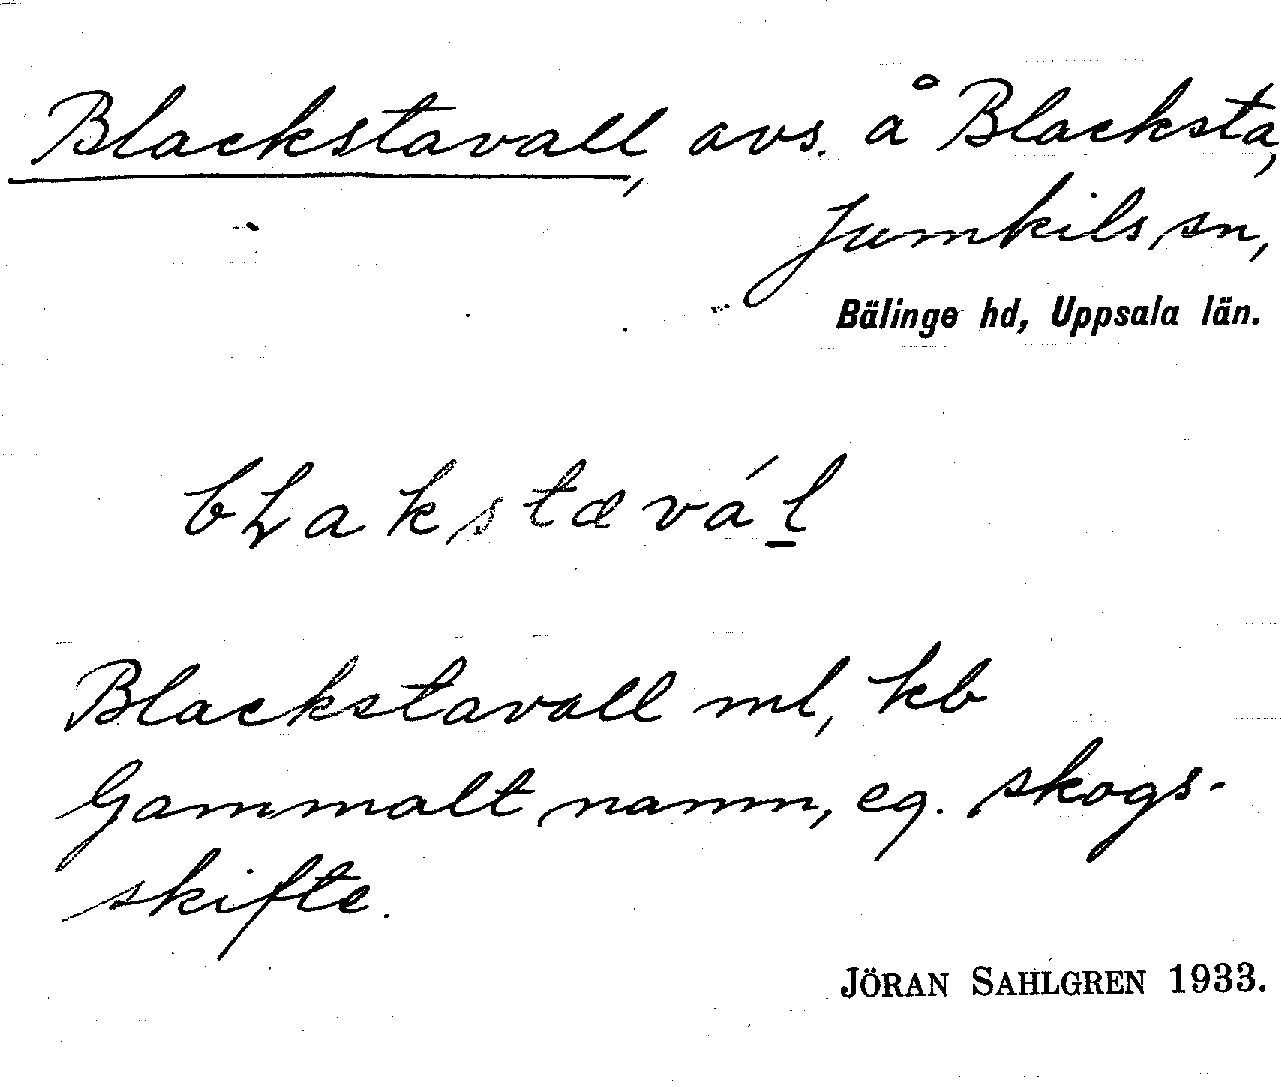 Blackstavall, avs. å Blacksta,
Jumkils sn,
Bälinge hd, Uppsala län.
bʟakstævál̲
Blackstavall ml, kb
Gammalt namn, eg. skogs-
skifte.
JÖRAN SAHLGREN 1933.